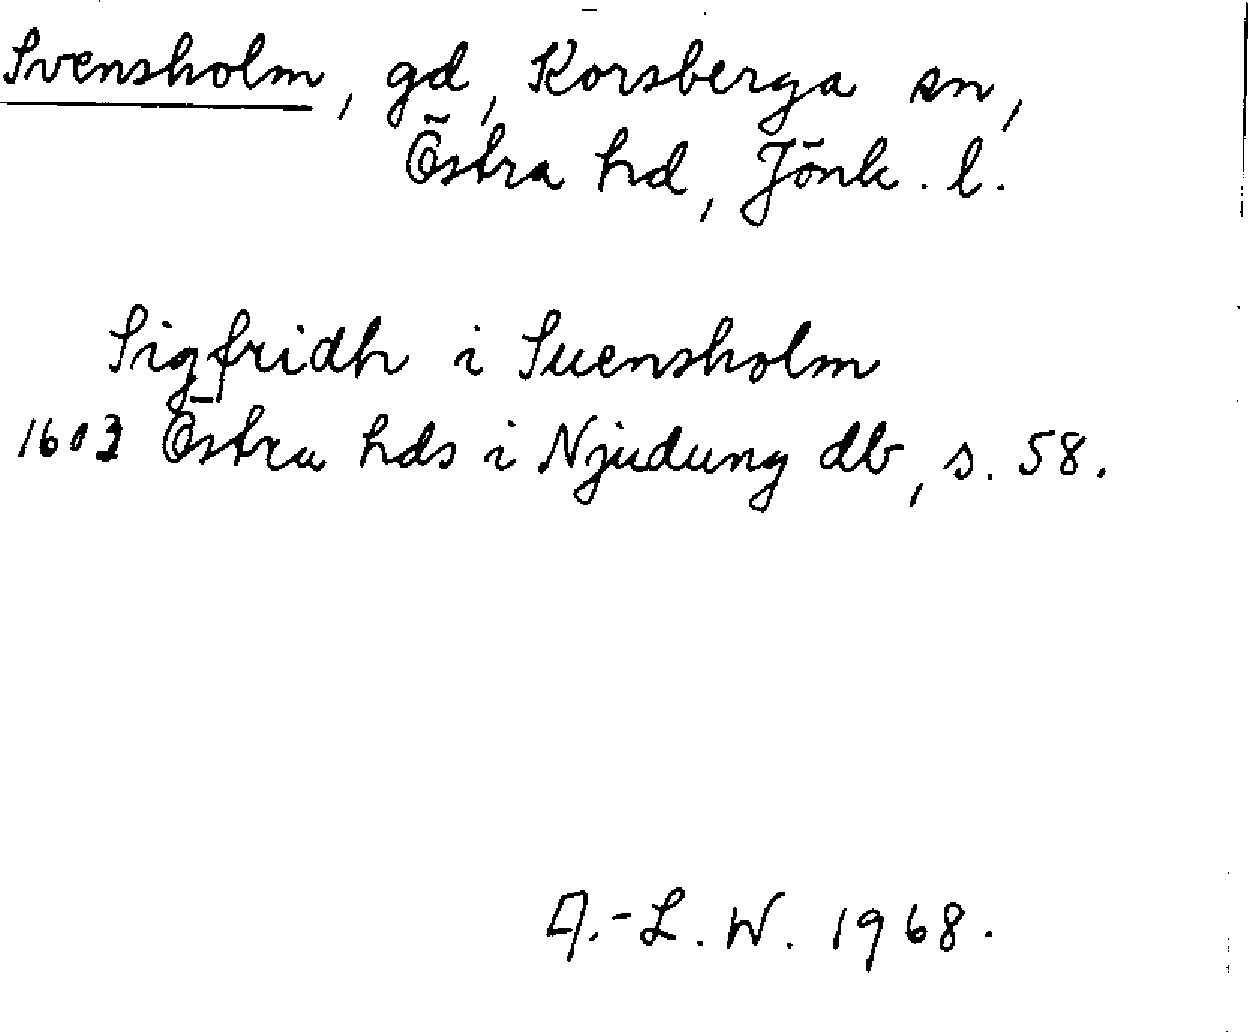 Svensholm, gd, Korsberga sn,
Östra hd, Jönk. l.
Sigfridh i Suensholm
1603 Östra hds i Njudung db, s. 58.
A.-L. W. 1968.